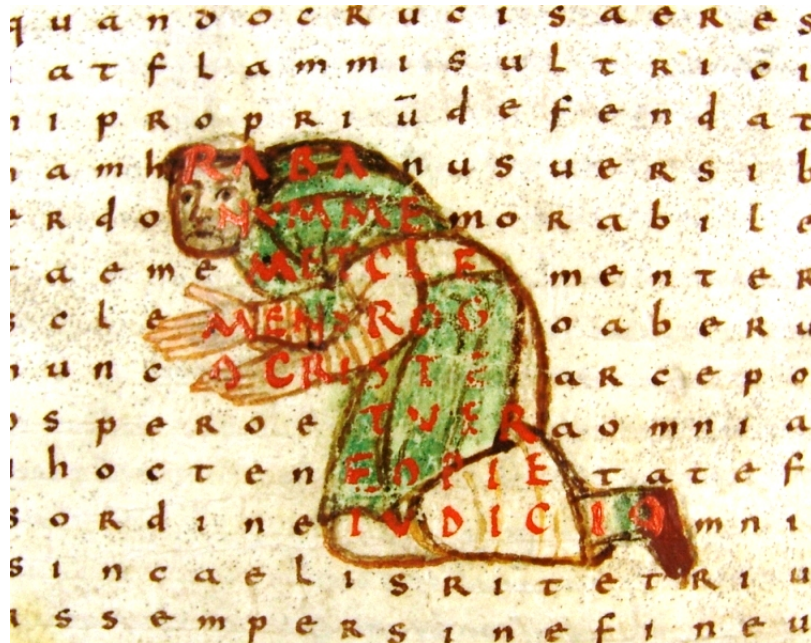 quandocrucisaeres
atflammisultrici
nipropriūdefendat
namhRABAnusuersib
erdoNVMMEmorabile
taemeMETCLEmenter
scleMENSROGoaberu
nuncOCRISTEarcepo
osperoeTVERaomnia
hoctenEOPIEtatef
sordineIVDICIOmni
sincaelisritetriu
ssempersinefineu